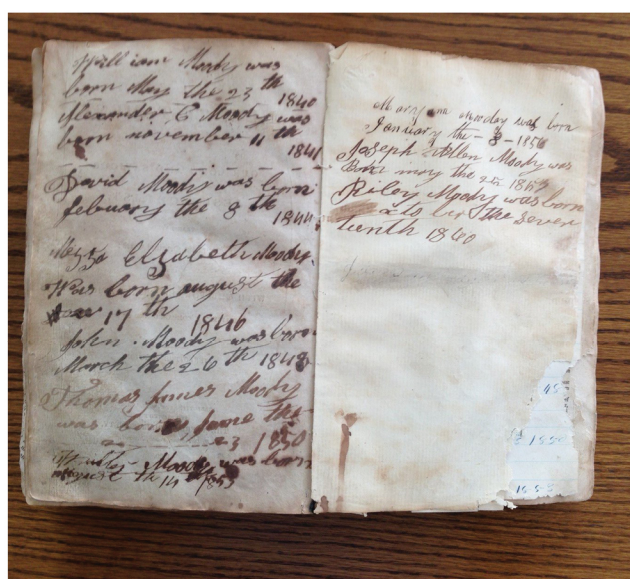 William Moody was
born May the 23 th
1840
Alexander C Moody was
born november 11 th
1841
David Moody was born
febuary the 8 th
1844
Elizabeth Moody.
Was born august the
17 th 1846
John. Moody was born
March the 26 th 1848
Thomas James Moody
was born June the
23 1850
Moody was born
august th 14 1853
Mary ann Mooday was born
January the - 8 - 1856
Joseph Allen Moody was
Born may the 2th
Riley Moody was born
the Seven
teenth 1860
45
1850
185